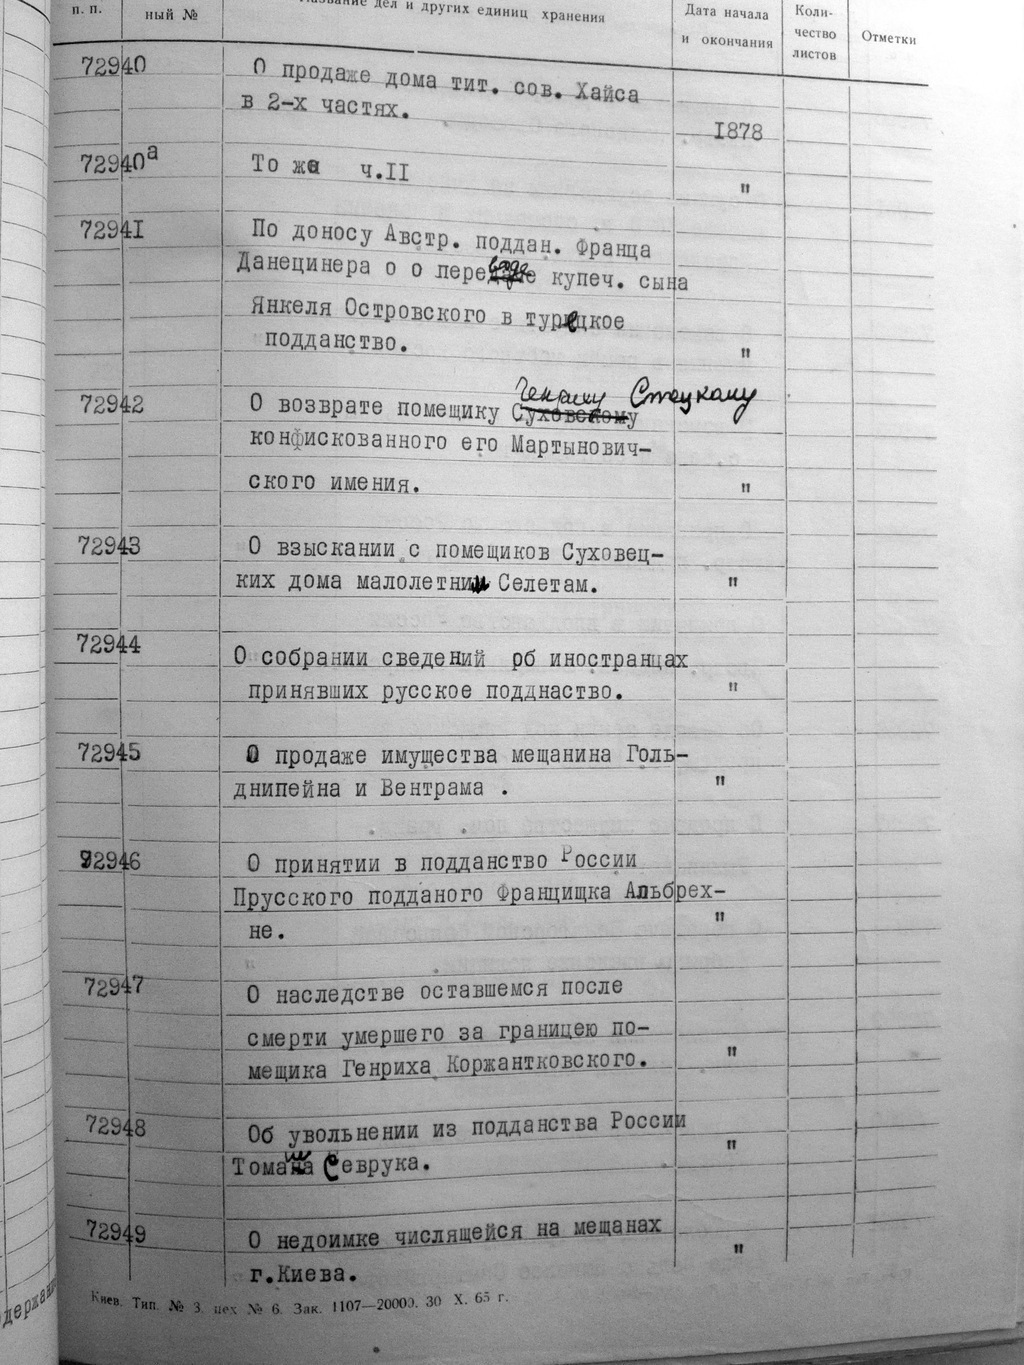 п. п.
ный №
Название дел и других единиц хранения
Дата начала
и окончания
Коли-
чество
листов
Отметки
72940
О продаже дома тит. сов. Хайса
в 2-х частях.
1878
72940а
То же ч.II
"
72941
По доносу Австр. поддан. Франца
Данецинера о о переходе купеч. сына
Янкеля Островского в турецкое
подданство.
"
72942
О возврате помещику Генриху Стецкому
конфискованного его Мартынович-
ского имения.
"
72943
О взыскании с помещиков Суховец-
ких дома малолетним Селетам.
"
72944
О собрании сведений об иностранцах
принявших русское подднаство.
"
72945
О продаже имущества мещанина Голь-
днипейна и Вентрама .
"
72946
О принятии в подданство России
Прусского подданого Францищка Альбрех-
не.
"
72947
О наследстве оставшемся после
смерти умершего за границею по-
мещика Генриха Коржантковского.
"
72948
Об увольнении из подданства России
Томаша Севрука.
"
72949
О недоимке числящейся на мещанах
г.Киева.
"
Киев. Тип. № 3. цех № 6. Зак. 1107—20000. 30 X. 65 г.